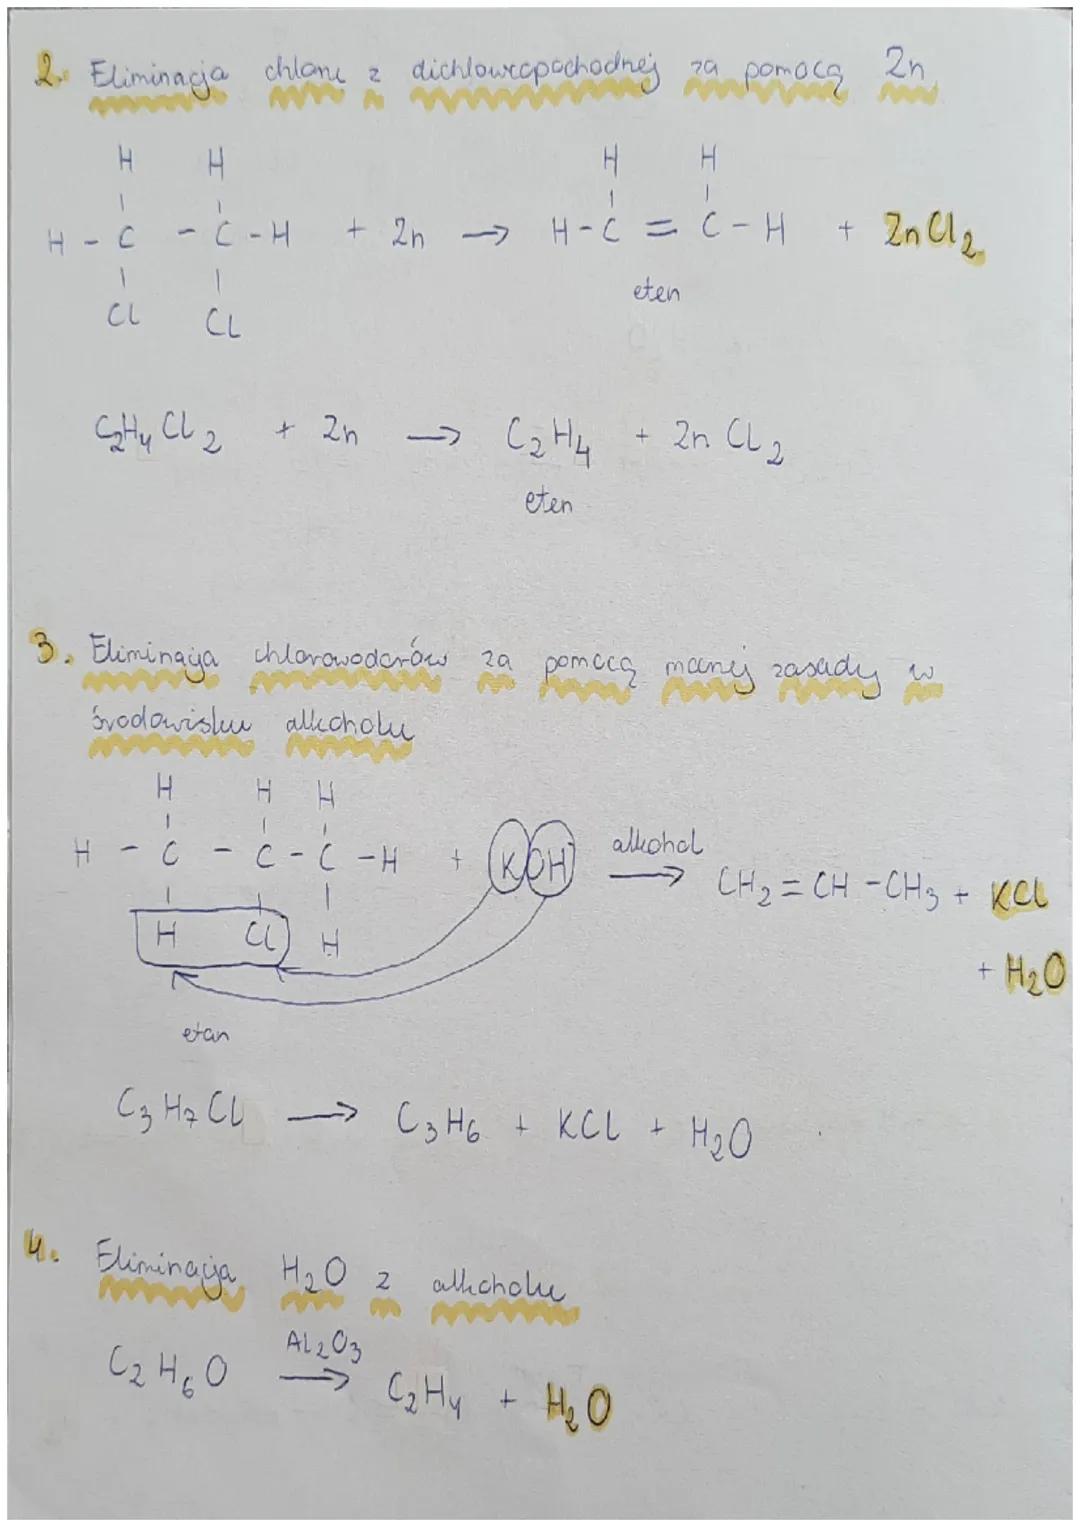 2. Eliminacja chloru z dichloropochodnej za pomocą Zn
H H H H
H - C - C - H + Zn → H - C = C - H + ZnCl2
Cl Cl eten
C2H4Cl2 + Zn → C2H4 + ZnCl2
eten
3. Eliminacja chlorowodorów za pomocą mocnej zasady w
środowisku alkoholu
H H H
H - C - C - C - H + KOH alkohol → CH2 = CH - CH3 + KCl
H Cl H + H2O
etan
C3H7Cl → C3H6 + KCl + H2O
4. Eliminacja H2O z alkoholu
C2H6O Al2O3 → C2H4 + H2O